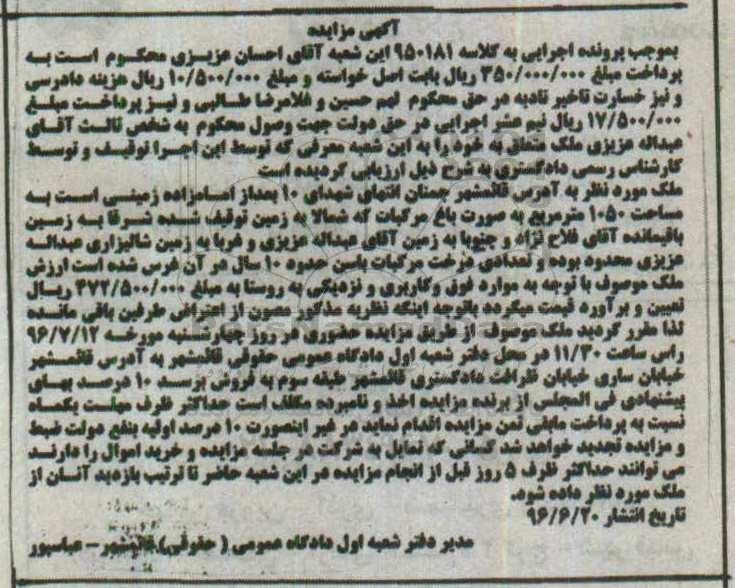 آگهی مزایده
بموجب پرونده اجرایی به کلاسه ۹۵۰۱۸۱ این شعبه آقای احسان عزیزی محکوم است به
پرداخت مبلغ ۳۵۰/۰۰۰/۰۰۰ ریال بابت اصل خواسته و مبلغ ۱۰/۵۰۰/۰۰۰ ریال هزینه دادرسی
و نیز خسارت تاخیر تادیه در حق محکوم لهم حسین و غلامرضا طالبی و نیز پرداخت مبلغ
۱۷/۵۰۰/۰۰۰ ریال نیم عشر اجرایی در حق دولت جهت وصول محکوم به شخص ثالث آقای
عبداله عزیزی ملک متعلق به خود را به این شعبه معرفی که توسط این اجرا توقیف و توسط
کارشناس رسمی دادگستری به شرح ذیل ارزیابی گردیده است
ملک مورد نظر به آدرس قائمشهر جمنان انتهای شهدای ۱۰ بعداز امامزاده زمینی است به
مساحت ۱۰۵۰ مترمربع به صورت باغ مرکبات که شمالا به زمین توقیف شده شرقا به زمین
باقیمانده آقای فلاح نژاد و جنوبا به زمین آقای عبداله عزیزی و غربا به زمین شالیزاری عبداله
عزیزی محدود بوده و تعدادی درخت مرکبات باسن حدود ۱۰ سال در آن غرس شده است ارزش
ملک موصوف با توجه به موارد فوق وکاربری و نزدیکی به روستا به مبلغ ۴۷۲/۵۰۰/۰۰۰ ریال
تعیین و برآورد قیمت میگردد باتوجه اینکه نظریه مذکور مصون از اعتراض طرفین باقی مانده
لذا مقرر گردید ملک موصوف از طریق مزایده حضوری در روز چهارشنبه مورخه ۹۶/۷/۱۲
راس ساعت ۱۱/۳۰ در محل دفتر شعبه اول دادگاه عمومی حقوقی قائمشهر به آدرس قائمشهر
خیابان ساری خیابان ظرافت دادگستری قائمشهر طبقه سوم به فروش برسد ۱۰ درصد بهای
پیشنهادی فی المجلس از برنده مزایده اخذ و نامبرده مکلف است حداکثر ظرف مهلت یکماه
نسبت به پرداخت مابقی ثمن مزایده اقدام نماید در غیر اینصورت ۱۰ درصد اولیه بنفع دولت ضبط
و مزایده تجدید خواهد شد کسانی که تمایل به شرکت در جلسه مزایده و خرید اموال را دارند
می توانند حداکثر ظرف ۵ روز قبل از انجام مزایده در این شعبه حاضر تا ترتیب بازدید آنان از
ملک مورد نظر داده شود.
تاریخ انتشار ۹۶/۶/۲۰
مدیر دفتر شعبه اول دادگاه عمومی ( حقوقی) قائمشهر – عباسپور